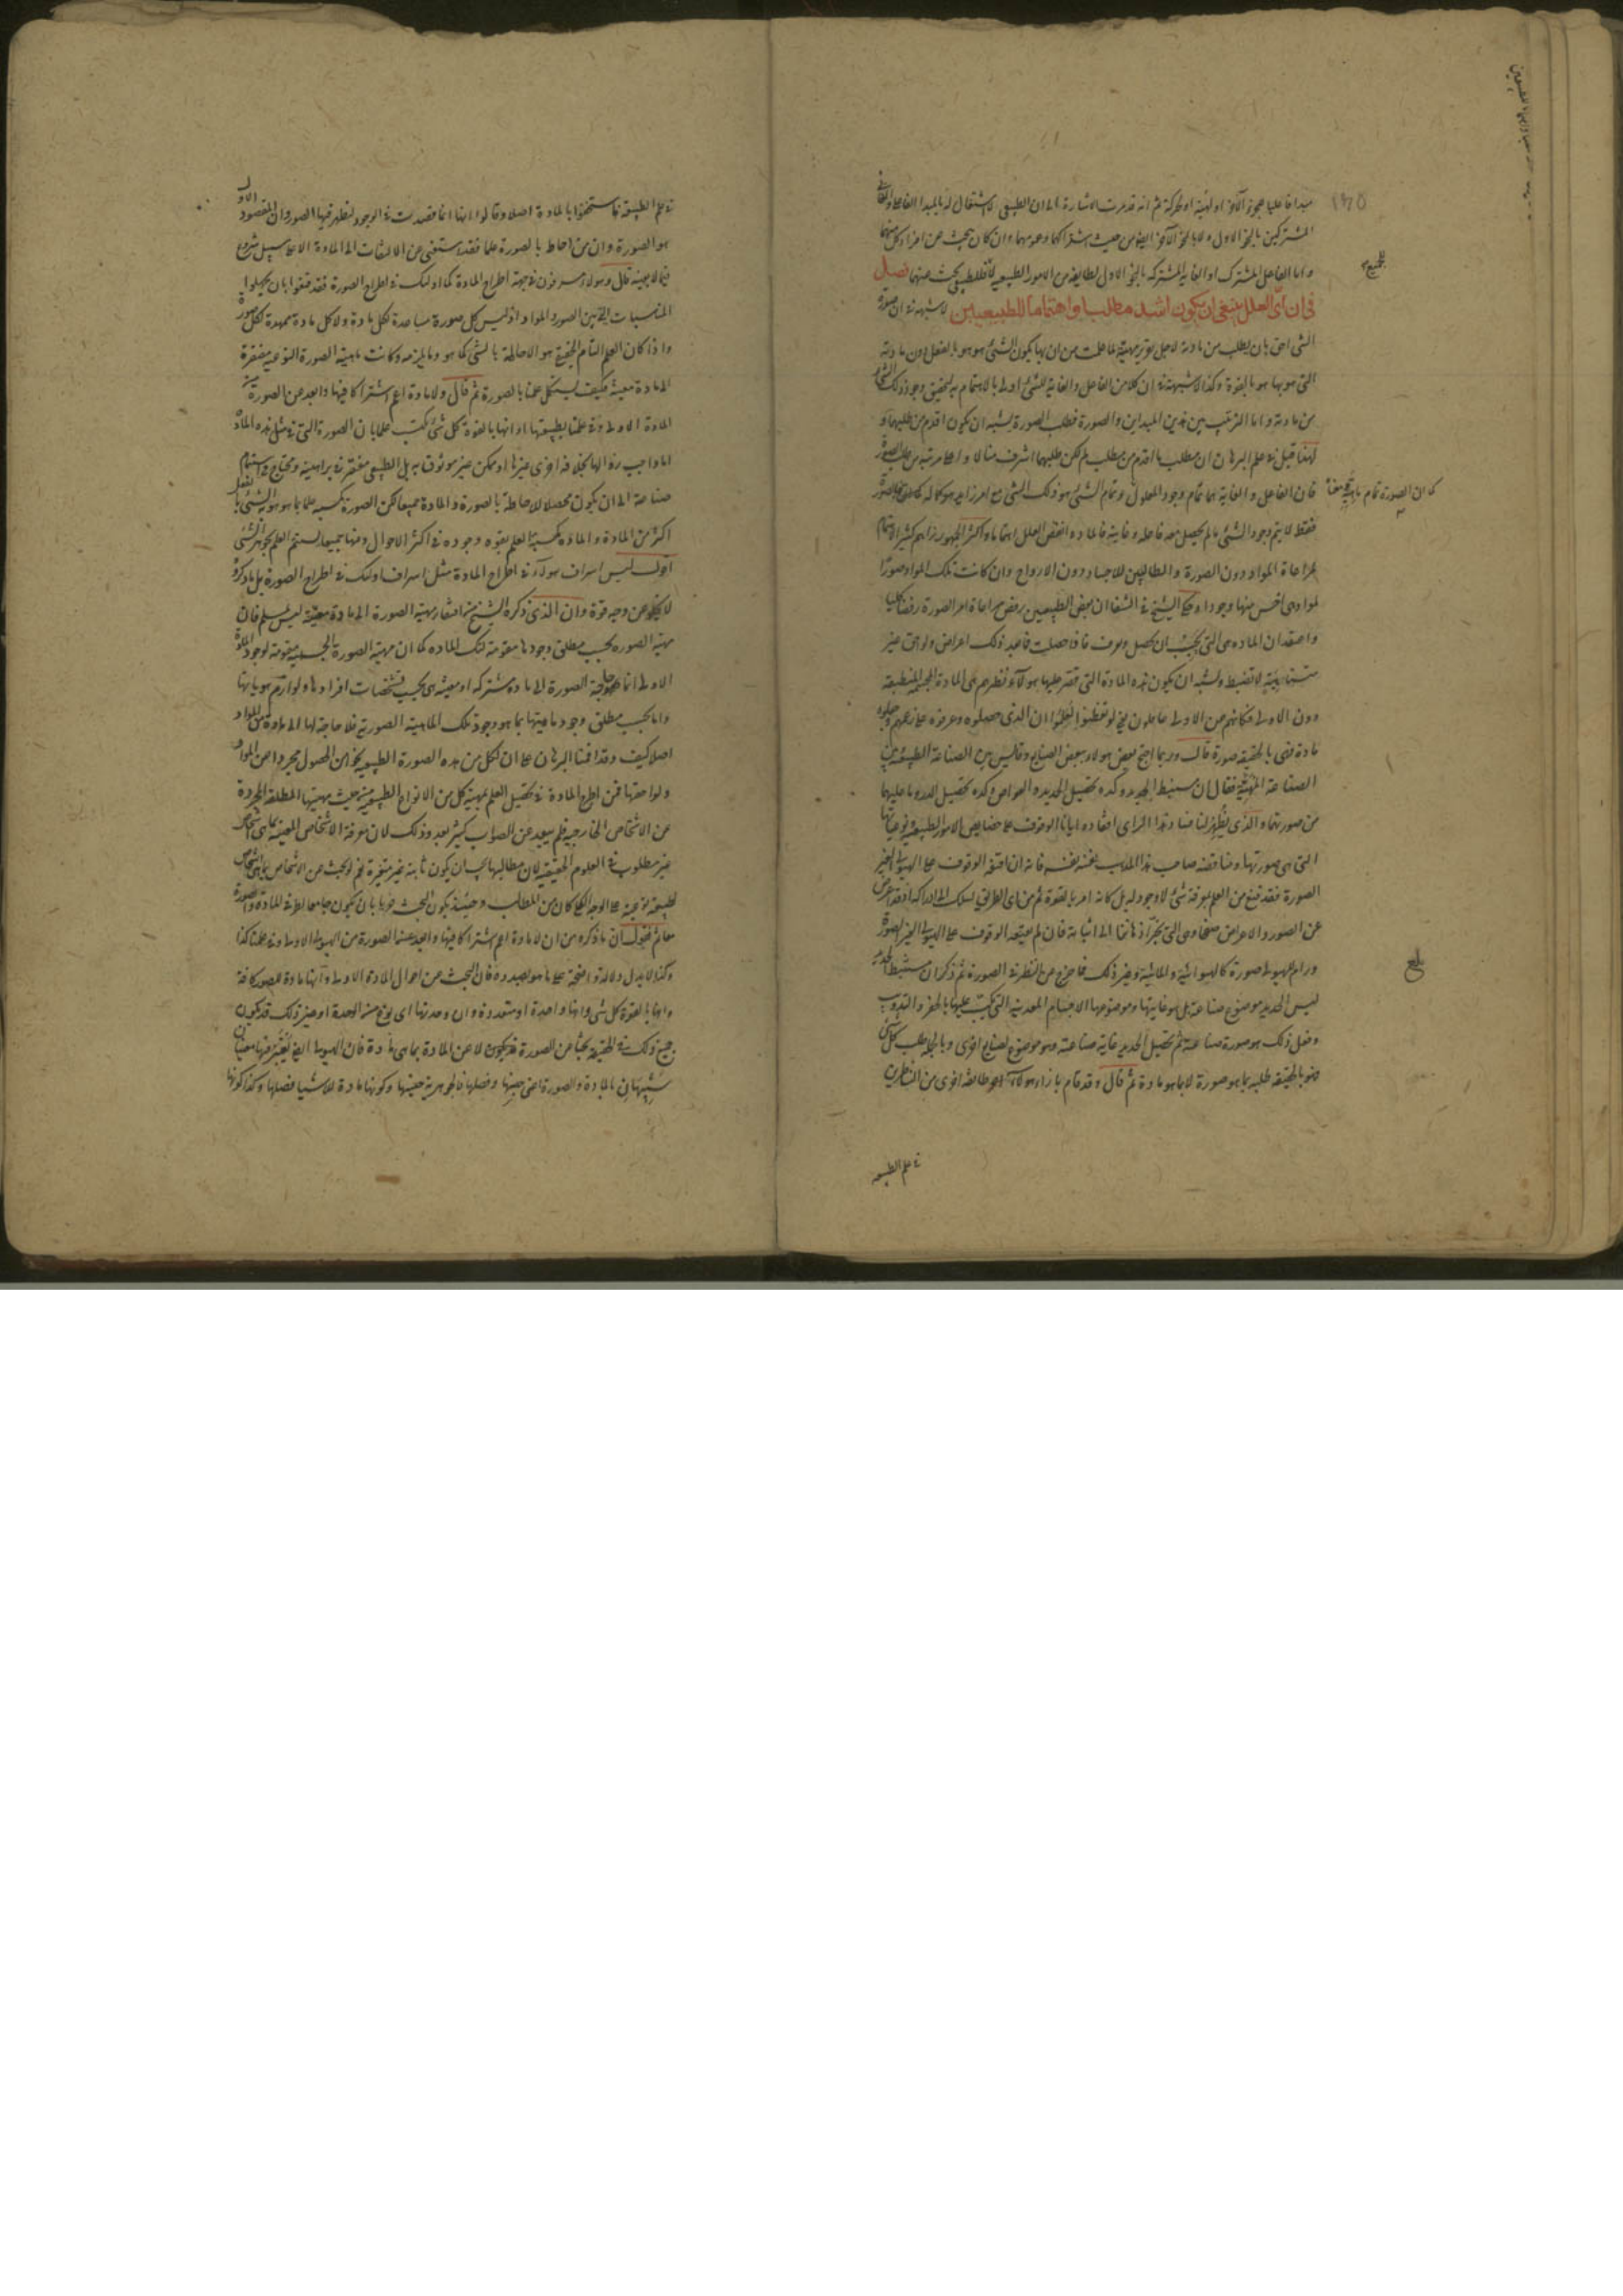 مبدا فاعليا بنحو الآخر او لهيئة او لحركة ثم انه قد مرت الاشارة الى ان الطبيعى لا اشتغال له بالمبدا الفاعلى والغائى
المشتركين بالنحو الاول ولا بالنحو الآخر ايضا من حيث اشتراكهما وعمومهما وان كان يبحث عن افراد كل منهما
واما الفاعل المشترك او الغاية المشتركه بالنحو الاول لطايفة من الامور الطبيعيه فللطبيعى بحث عنهما فصل
فى ان اى العلل ينبغى ان يكون اشد مطلبا واهتماما للطبيعيين لا شبهة فى ان صورة
الشى احق بان يطلب من مادته لاجل تقرير مهيته لما علمت من ان بها يكون الشئ هو هو بالفعل دون مادته
التى هو بها هو بالقوة وكذا لا شبهة فى ان كلا من الفاعل والغاية للشئ اولى بالاهتمام به لتحقيق وجود ذلك الشئ
من مادته واما الترتيب بين هذين المبداين والصورة فطلب الصورة يشبه ان يكون اقدم من طلبهما و
لهذا قيل فى علم البرهان ان مطلب ما اقدم من مطلب لم لكن طلبهما اشرف منالا واعلى مرتبه من طلب الصورة
فان الفاعل والغاية بهما تمام وجود المعلول وتمام الشئ هو ذلك الشى مع امر زايد هو كماله
كما ان الصورة تمام ماهيته
فقط لا يتم وجود الشئ ما لم يحصل معه فاعله وغايته فالمادة انقص العلل اهتماما واكثر الجمهور تراهم كثير الاهتمام
لمراعاة المواد دون الصورة والطالبين للاجساد دون الارواح وان كانت تلك المواد صورا
لمواد هى اخس منها وجودا وحكى الشيخ فى الشفا ان بعض الطبيعيين رفض مراعاة امر الصورة رفضا كليا
واعتقد ان المادة هى التى يجب ان تحصل وتعرف فاذا حصلت فما بعد ذلك اعراض ولواحق غير
متناهية لا تضبط ويشبه ان يكون هذه المادة التى قصر عليها هولاء نظرهم هى المادة المجسمة المنطبعة
دون الاولى فكانهم عن الاولى غافلون
مادة فهى بالحقيقه صورة قال وربما احتج بعض هولاء ببعض الصنايع وقايس بين الصناعة الطبيعية وبين
الصناعة المهنية فقال ان مستنبط الحديد وكده تحصيل الحديد والغواص وكده تحصيل الدرر وما عليهما
من صورتهما والذى يظهر لنا فساد هذا الراى افقاده ايانا الوقوف على خصايص الامور الطبيعية ونوعياتها
التى هى صورتها ومناقضة صاحب هذا المذهب نفسه بنفسه فانه ان اقنعه الوقوف على الهيولى الغير
الصورة فقد قنع من العلم بمعرفة شئ لا وجود له بل كانه امر بالقوة ثم من اى الطريق يسلك الى ادراكه اذ قد اعرض
عن الصور والاعراض صفحا وهى التى تجر اذهاننا الى اثباته فان لم يقنعه الوقوف على الهيولى الغير الصورة
ورام للهيولى صورة كالهوائية والمائية وغير ذلك فما خرج من النظر فى الصورة ثم ذكر ان مستنبط الحديد
ليس الحديد موضوع صناعته بل هو غايتها وموضوعها الاجسام المعدنية التى يكب عليها بالحفر والتذويب
وفعل ذلك هو صورة صناعته ثم تحصيل الحديد غاية صناعته وهو موضوع لصنايع اخرى وبالجملة طلب كل شئ
هو بالحقيقه طلبه بما هو صورة لا بما هو مادة ثم قال وقد قام بازاء هولاء طائفة اخرى من الناظرين
فى علم الطبيعه
فى علم الطبيعة فاستخفوا بالمادة اصلا وقالوا انها انما قصدت فى الوجود ليظهر فيها الصور وان المقصود الاول
هو الصورة وان من احاط بالصورة علما فقد استغنى عن الالتفات الى المادة الا على سبيل شروع
فيما لا يعنيه قال وهولاء مسرفون فى جهة اطراح المادة كما اولئك فى اطراح الصورة فقد قنعوا بان يجهلوا
المناسبات التى بين الصور والمواد اذ ليس كل صورة مساعدة لكل مادة ولا كل مادة ممهدة لكل صورة
واذا كان العلم التام الحقيقى هو الاحاطة بالشى كما هو وما يلزمه وكانت ماهية الصورة النوعيه مفتقرة
الى مادة معينة فكيف يستكمل علمنا بالصورة ثم قال ولا مادة اعم اشتراكا فيها وابعد عن الصورة من
المادة الاولى وفى علمنا بطبيعتها وانها بالقوة كل شئ نكتسب علما بان الصورة التى فى مثل هذه المادة
اما واجب زوالها بخلافة اخرى غيرها او ممكن غير موثوق به بل الطبيعى مفتقر فى براهينه ومحتاج فى استتمام
صناعته الى ان يكون محصلا للاحاطة بالصورة والمادة جميعا لكن الصورة تكسبه علما بما هو هوية الشئ بالفعل
اكثر من المادة والمادة تكسبه العلم بقوة وجوده فى اكثر الاحوال ومنها جميعا يستتم العلم بجوهر الشئ
اقول ليس اسراف هولاء فى اطراح المادة مثل اسراف اولئك فى اطراح الصورة بل ما ذكروه
لا يخلو عن وجه قوة وان الذى ذكره الشيخ من افتقار مهية الصورة الى مادة معينة ليس بمسلم فان
مهية الصورة بحسب مطلق وجودها مقومة لتلك المادة كما ان مهية الصورة الجسمية مقومة لوجود المادة
الاولى انما حاجة الصورة الى مادة مشتركه او معينة هى بحسب تشخصات افرادها ولوازم هوياتها
واما بحسب مطلق وجود ماهيتها بما هو وجود تلك الماهية الصورية فلا حاجة لها الى مادة من المواد
اصلا كيف وقد اقمنا البرهان على ان لكل من هذه الصورة الطبيعيه نحوا من الحصول مجردا عن المواد
ولواحقها فمن اطرح المادة فى تحصيل العلم بمهية كل من الانواع الطبيعيه من حيث مهيتها المطلقة المجردة
عن الاشخاص الخارجيه فلم يبعد عن الصواب كثير بعد وذلك لان معرفة الاشخاص المعينة بما هى اشخاص
غير مطلوب فى العلوم الحقيقيه لان مطالبها يجب ان يكون ثابتة غير متغيرة نعم لو بحث عن الاشخاص بما هى اشخاص
لطبيعة نوعية على الوجه الكلى كان من المطالب وحينئذ يكون البحث
معا ثم نقول ان ما ذكره من ان لا مادة اعم اشتراكا فيها وابعد عن الصورة من الهيولى الاولى وفى علمنا كذا
وكذا لا يدل دلالة واضحة على ما هو بصدده فان البحث عن احوال المادة الاولى وانها مادة للصور كافة
وانها بالقوة كل شى وانها واحدة او متعددة وان وحدتها اى نوع من الوحدة او غير ذلك قد يكون
جميع ذلك فى الحقيقة بحثا عن الصورة لا عن المادة بما هى مادة فان الهيولى ايضا يعتبر فيها معنيان
شبيهان بالمادة والصورة اعنى جنسها وفصلها فالجوهرية جنسها وكونها مادة للاشيا فصلها وكذا كونها